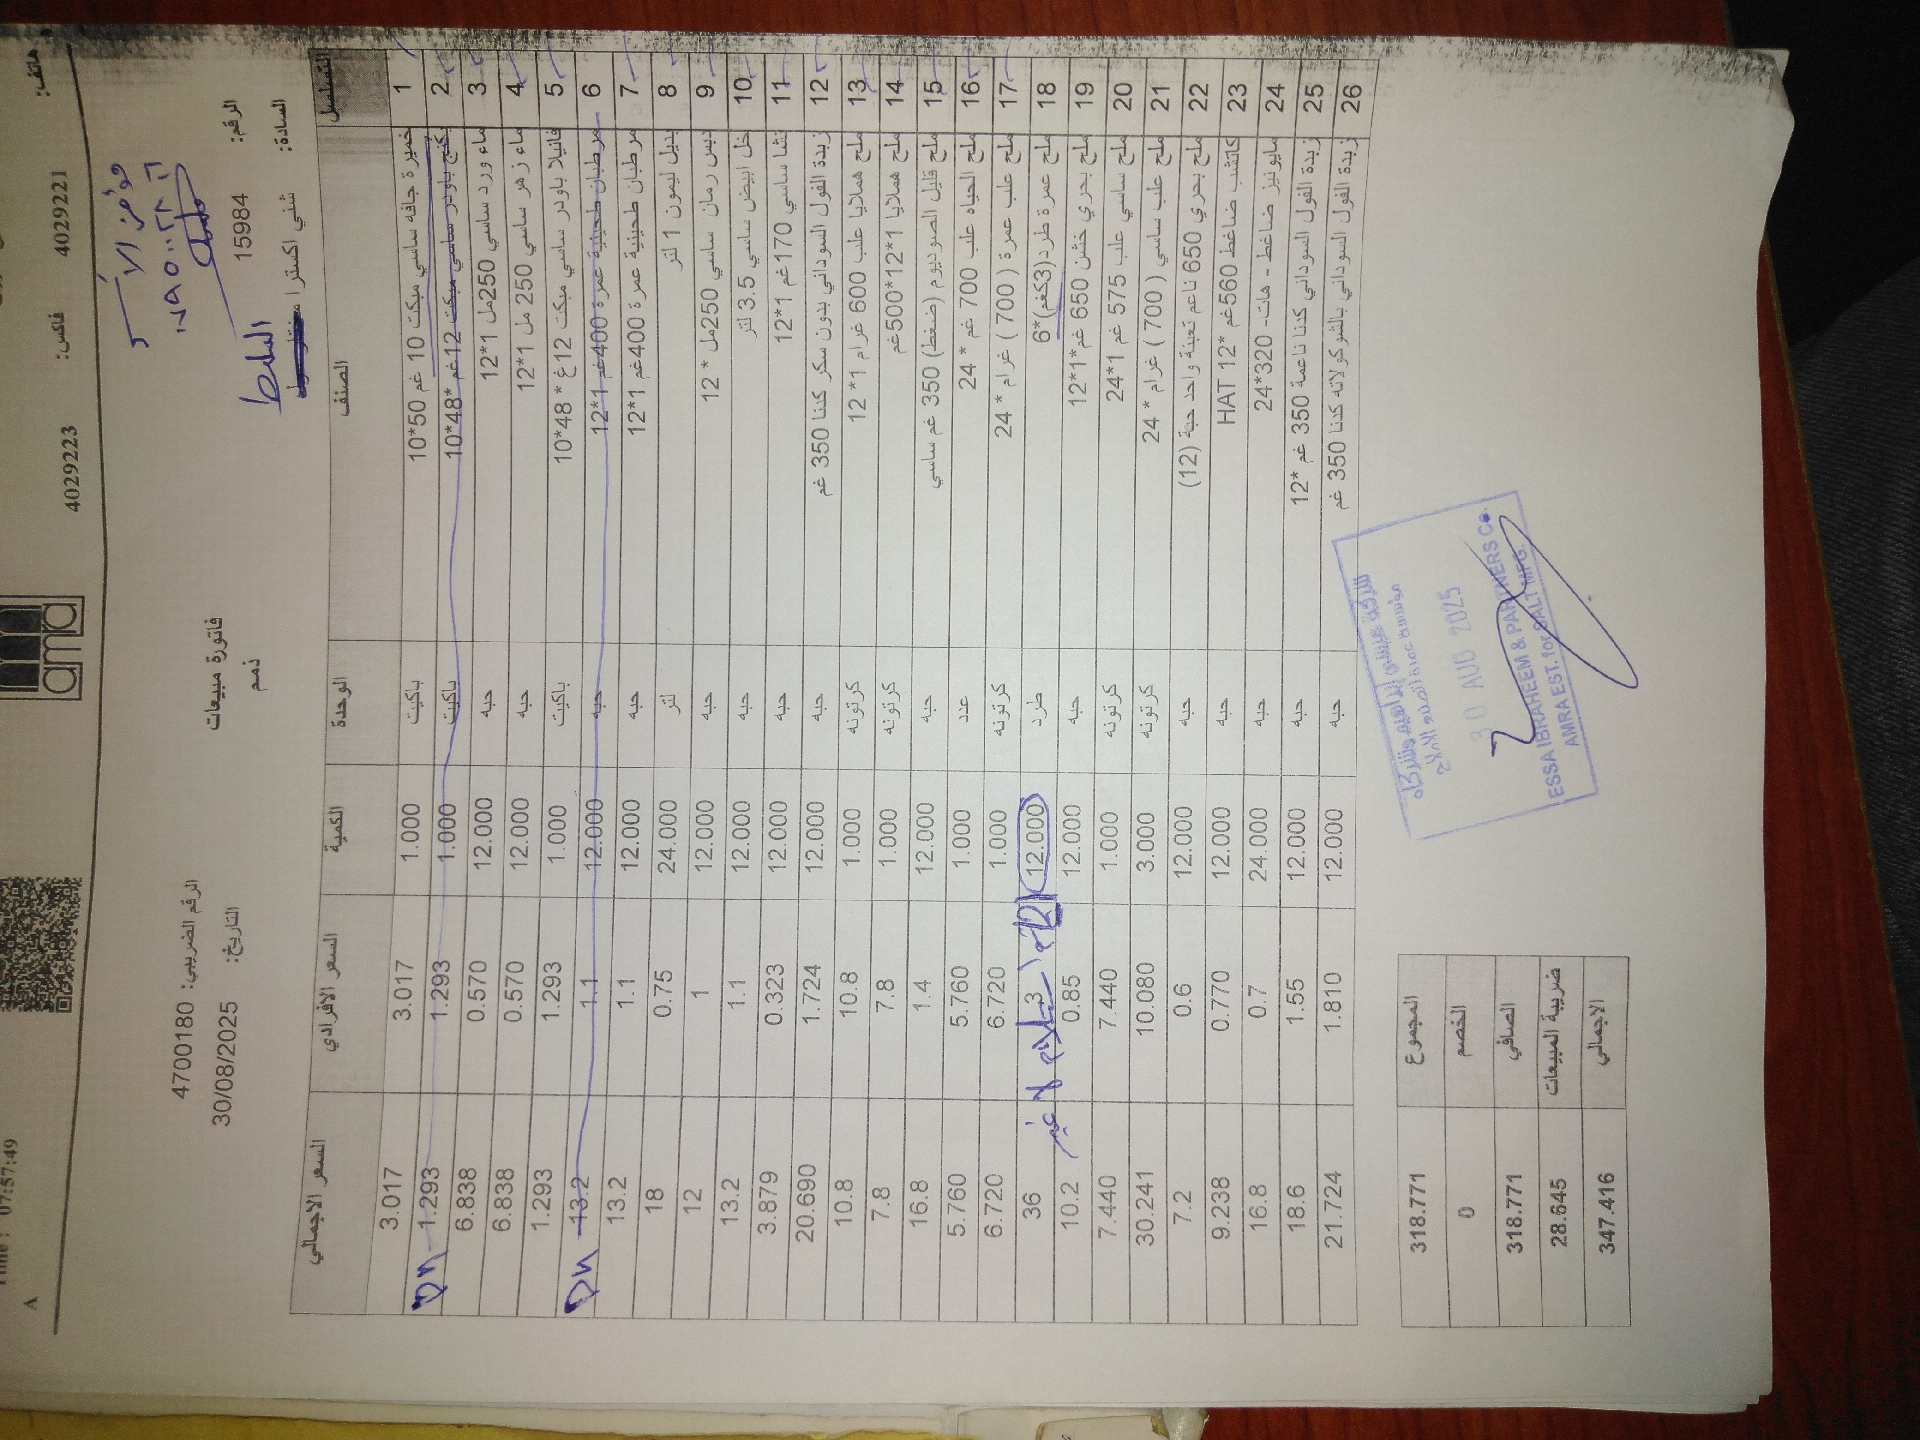 هاتف: 4029221 فاكس: 4029223
amra
Time : 07:57:49
A
فاتورة مبيعات
ذمم
الرقم: 15984
الرقم الضريبي: 4700180
التاريخ: 30/08/2025
السادة: شني اكسترا السلط
التسلسل الصنف الوحدة الكمية السعر الافرادي السعر الاجمالي
1 خميرة جافه ساسي مبكت 10 غم 50*10 باكيت 1.000 3.017 3.017
2 بكنج باودر ساسي مبكت 12غم *48*10 باكيت 1.000 1.293 1.293 Dn
3 ماء ورد ساسي 250مل 1*12 حبه 12.000 0.570 6.838
4 ماء زهر ساسي 250 مل 1*12 حبه 12.000 0.570 6.838
5 فانيلا باودر ساسي مبكت 12غ * 48*10 باكيت 1.000 1.293 1.293
6 مرطبان طحينية عمرة 400غم 1*12 حبه 12.000 1.1 13.2 Dn
7 مرطبان طحينية عمرة 400غم 1*12 حبه 12.000 1.1 13.2
8 بديل ليمون 1 لتر لتر 24.000 0.75 18
9 دبس رمان ساسي 250مل * 12 حبه 12.000 1 12
10 خل ابيض ساسي 3.5 لتر حبه 12.000 1.1 13.2
11 نشا ساسي 170غم 1*12 حبه 12.000 0.323 3.879
12 زبدة الفول السوداني بدون سكر كدنا 350 غم حبه 12.000 1.724 20.690
13 ملح هملايا علب 600 غرام 1* 12 كرتونه 1.000 10.8 10.8
14 ملح هملايا 1*12*500غم كرتونه 1.000 7.8 7.8
15 ملح قليل الصوديوم (ضغط) 350 غم ساسي حبه 12.000 1.4 16.8
16 ملح الحياه علب 700 غم * 24 عدد 1.000 5.760 5.760
17 ملح علب عمرة ( 700 ) غرام * 24 كرتونه 1.000 6.720 6.720
18 ملح عمرة طرد(3كغم)*6 طرد 12.000 36
19 ملح بحري خشن 650 غم*1*12 حبه 12.000 0.85 10.2
20 ملح ساسي علب 575 غم 1*24 كرتونه 1.000 7.440 7.440
21 ملح علب ساسي ( 700 ) غرام * 24 كرتونه 3.000 10.080 30.241
22 ملح بحري 650 ناعم تعبئة واحد حبة (12) حبه 12.000 0.6 7.2
23 كاتشب ضاغط 560غم *12 HAT حبه 12.000 0.770 9.238
24 مايونيز ضاغط - هات- 320*24 حبه 24.000 0.7 16.8
25 زبدة الفول السوداني كدنا ناعمة 350 غم *12 حبه 12.000 1.55 18.6
26 زبدة الفول السوداني بالشوكولاته كدنا 350 غم حبه 12.000 1.810 21.724
المجموع 318.771
الخصم 0
الصافي 318.771
ضريبية المبيعات 28.645
الاجمالي 347.416
شركة عيسى ابراهيم وشركاه
مؤسسة عمرة لصناعة الاملاح
30 AUG 2025
ESSA IBRAHEEM & PARTNERS Co.
AMRA EST. for SALT MFG.